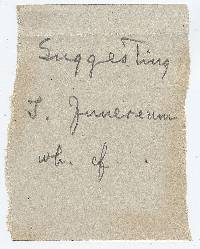 Suggesting
T. funereum
wh. cf. .